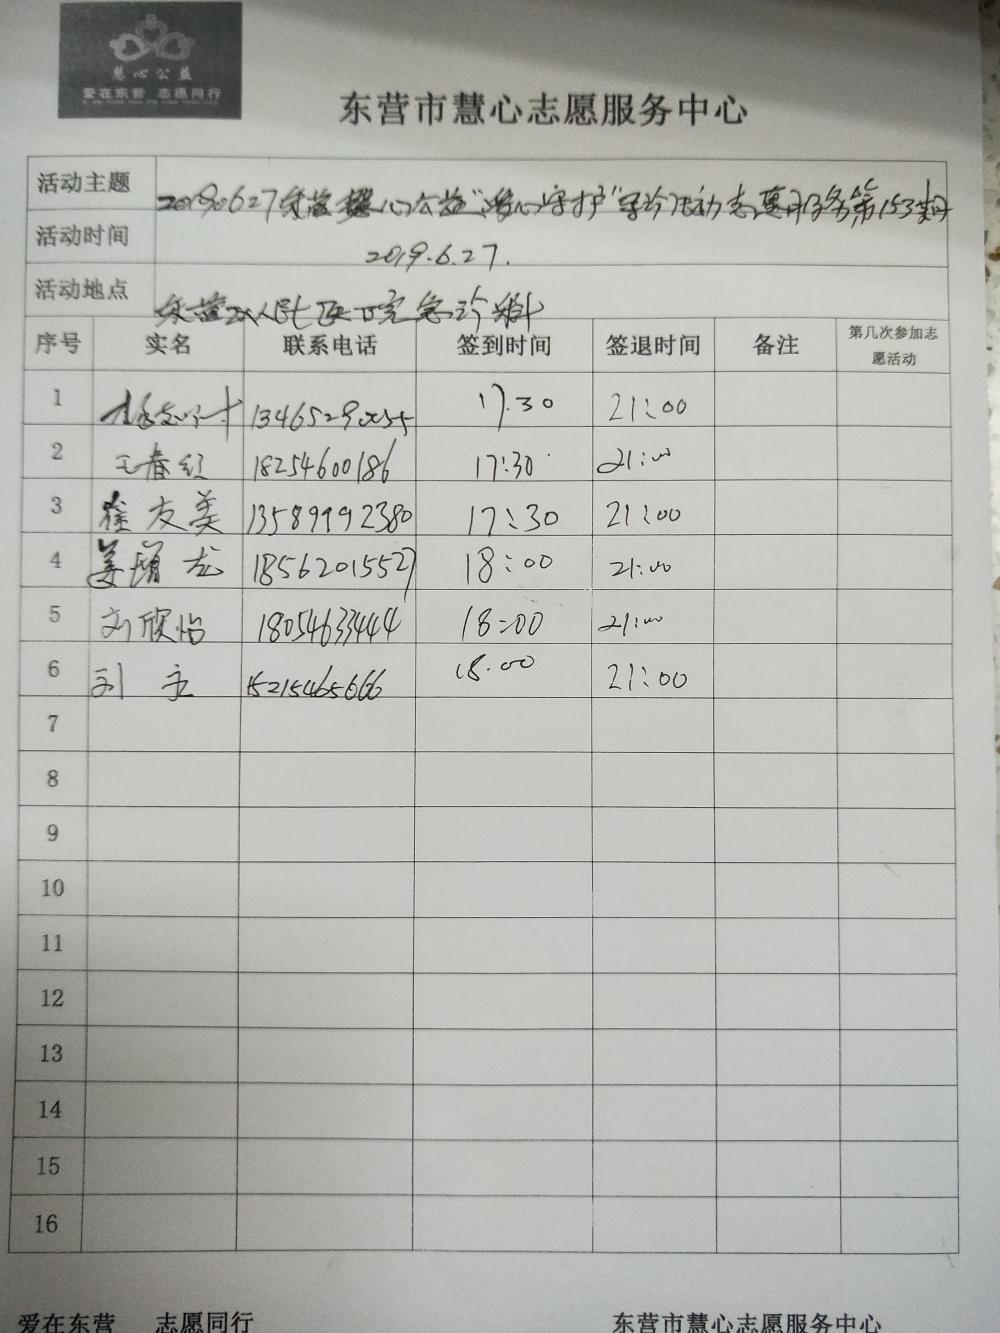 慧心公益
爱在东营 志愿同行
东营市慧心志愿服务中心
活动主题 20190627东营慧心公益"爱心守护"导诊活动志愿服务第153期
活动时间 2019.6.27.
活动地点 东营区人民医院急诊科
序号 实名 联系电话 签到时间 签退时间 备注 第几次参加志
愿活动
1 13465290055 17.30 21:00
2 王春红 18254600186 17:30 21:00
3 崔友美 13589992380 17:30 21:00
4 姜 龙 18562015527 18:00 21:00
5 刘欣怡 18054633444 18:00 21:00
6 刘 永 15215465666 18.00 21:00
7
8
9
10
11
12
13
14
15
16
爱在东营 志愿同行 东营市慧心志愿服务中心